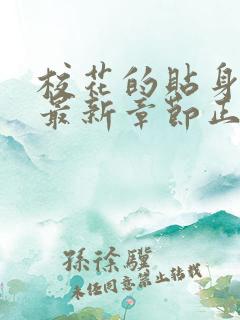 校花的貼身
最新章節正
孫徐驥
未经同意禁止转载